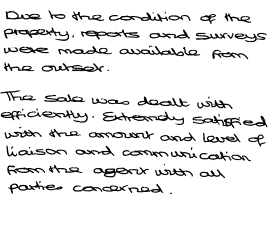 Due to the condition of the
property, reports and surveys
were made available from
the outset.
The sale was dealt with
efficiently. Extremely satisfied
with the amount and level of
liaison and communication
from the agent with all
parties concerned.